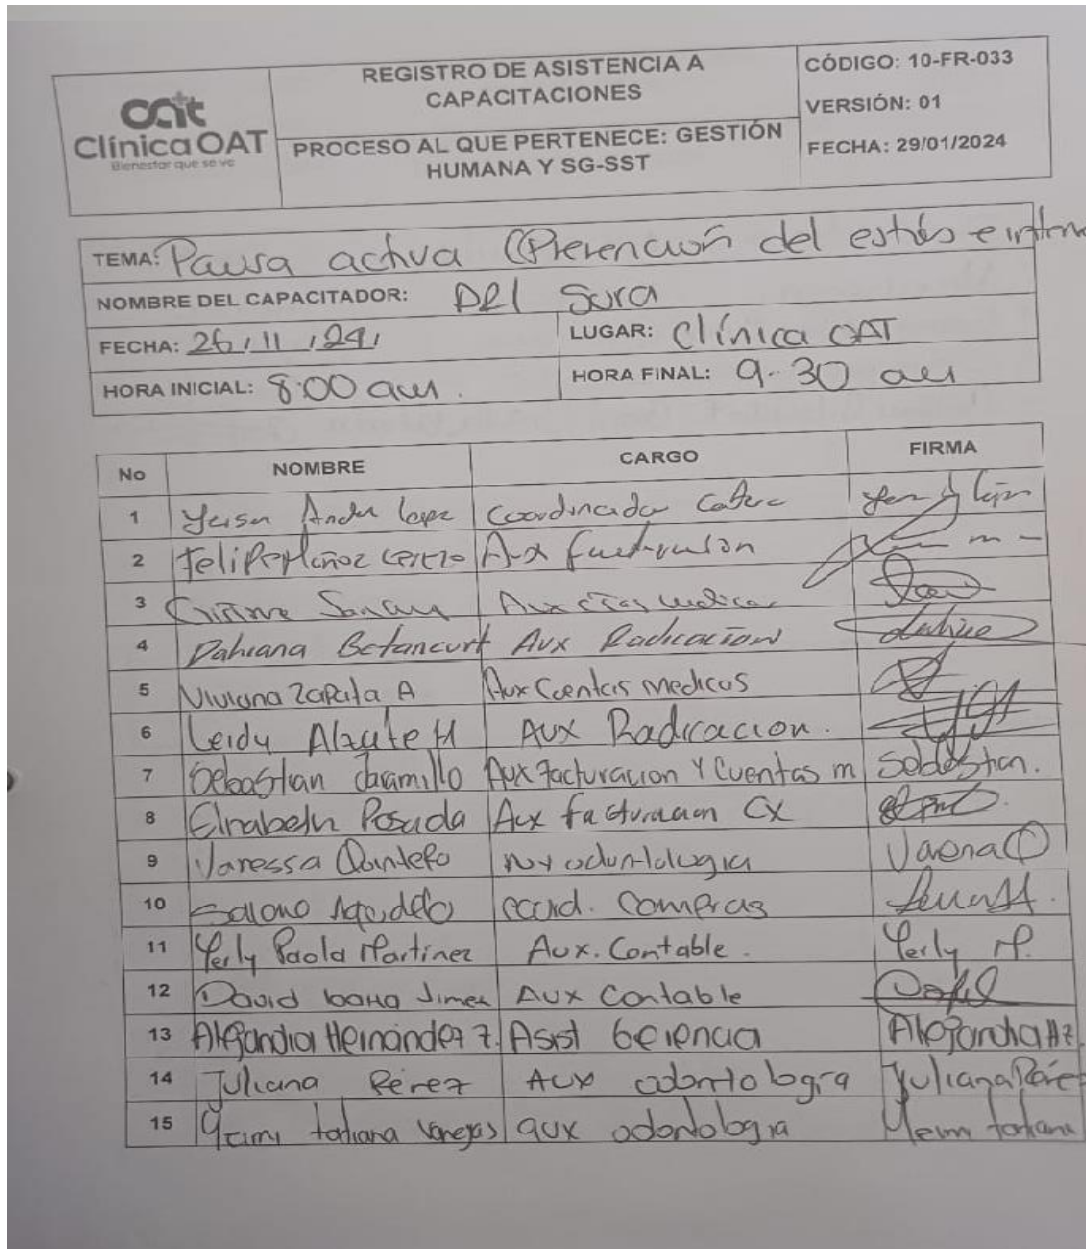 oat
Clínica OAT
Bienestar que se ve
REGISTRO DE ASISTENCIA A
CAPACITACIONES
PROCESO AL QUE PERTENECE: GESTIÓN
HUMANA Y SG-SST
CÓDIGO: 10-FR-033
VERSIÓN: 01
FECHA: 29/01/2024
TEMA: Pausa activa (Prevención del estrés e
NOMBRE DEL CAPACITADOR: Arl Sura
FECHA: 26/11/24/ LUGAR: Clínica OAT
HORA INICIAL: 8:00 am. HORA FINAL: 9:30 am
No NOMBRE CARGO FIRMA
1 Lopez Coordinador
2 Felipe Muñoz Aux
3 Aux
4 Dahiana Betancurt Aux Radicación
5 Viviana Zapata A Aux Cuentas medicas
6 Leidy Alzate H Aux Radicacion.
7 Sebastian Jaramillo Aux Facturacion Y Cuentas m Sebastian.
8 Posada Aux facturacion CX
9 Vanessa Quintero odontologia
10 Agudelo Coord. Compras
11 Yerly Paola Martinez Aux. Contable. Yerly M.
12 David Aux Contable
13 Alejandra Hernández Z. Asist Gerencia Alejandra Hz
14 Juliana Pérez Aux odontología Juliana Pérez
15 Yeimi tatiana Vanegas aux odontologia Yeimi tatiana